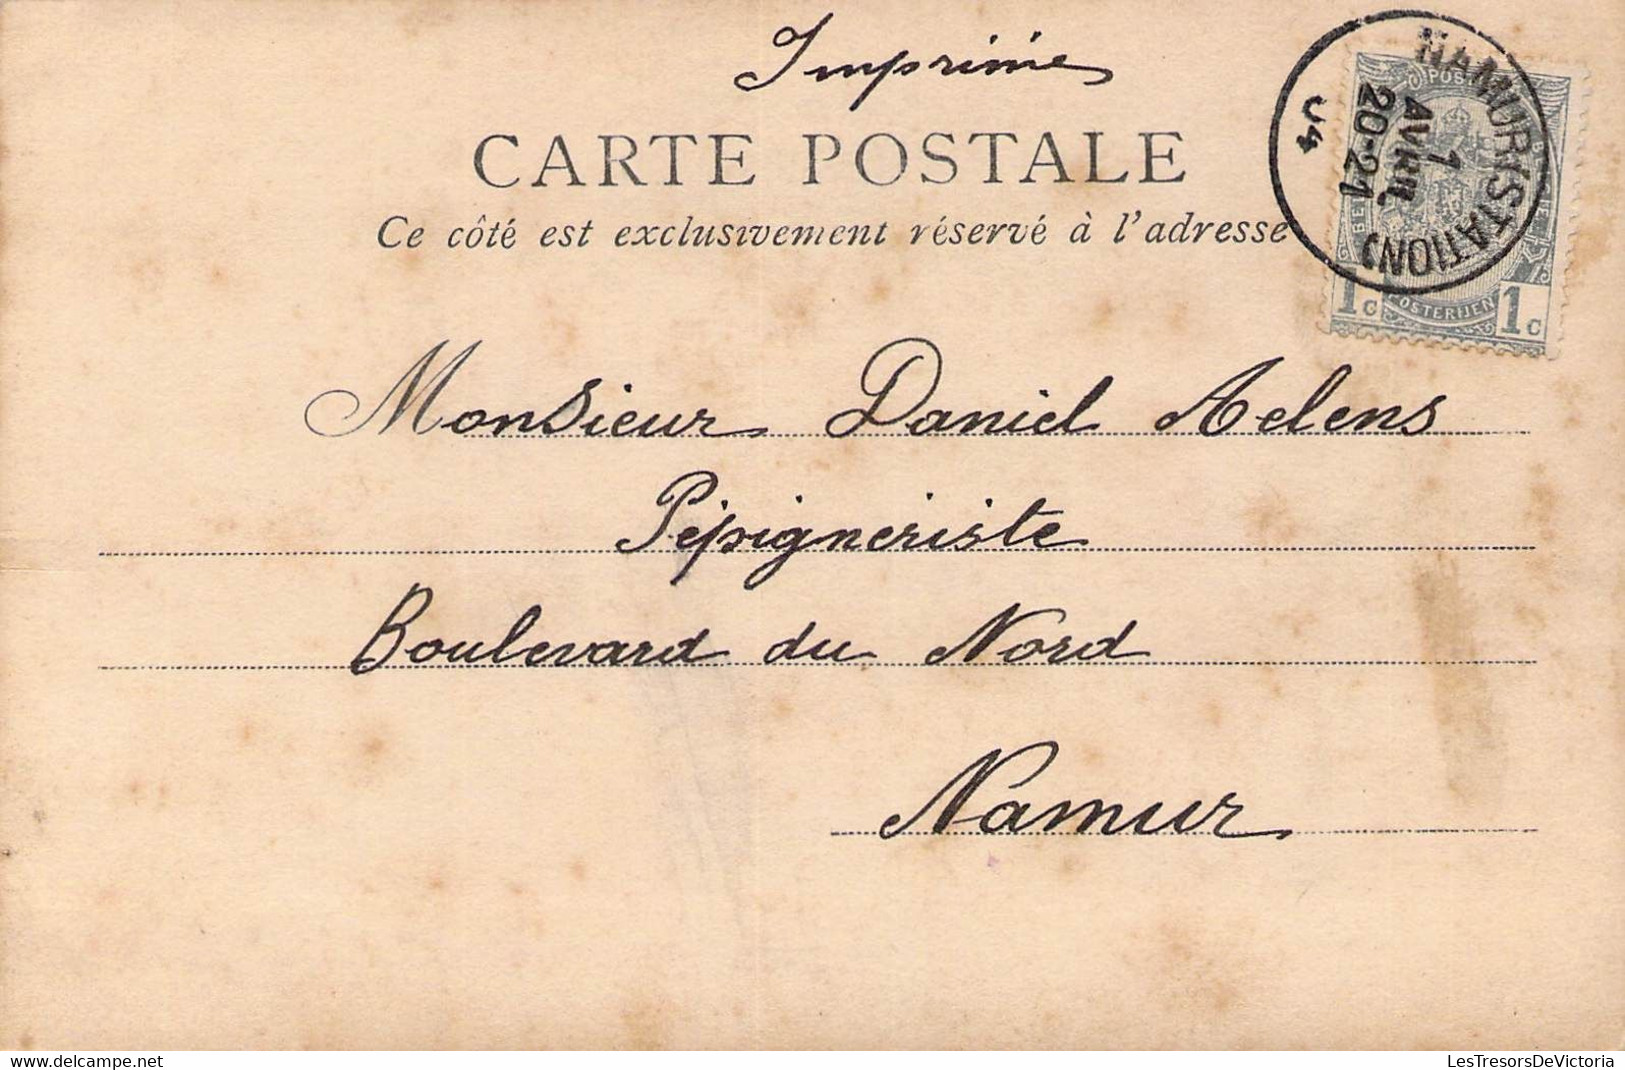 Imprimé
CARTE POSTALE
Ce côté est exclusivement réservé à l'adresse
NAMUR (STATION)
1
AVRIL
20-21
04
POSTERIJEN
1c 1c
Monsieur Daniel Aelens
Pépigneriste
Boulevard du Nord
Namur
delcampe.net
LesTresorsDeVictoria